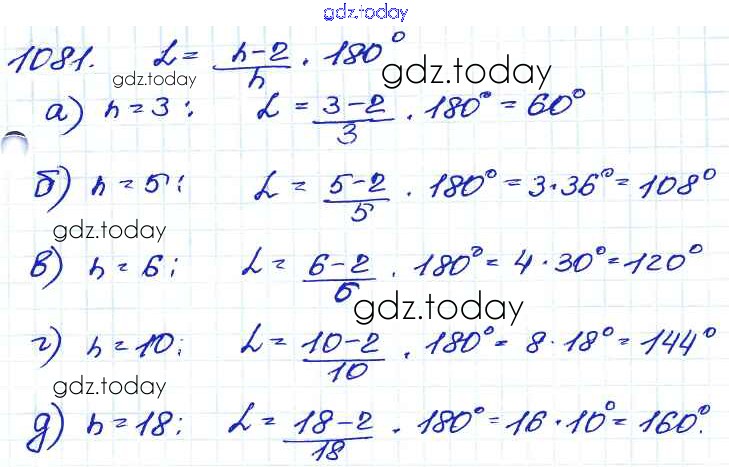 gdz.today
1081. α = n-2/n · 180°
gdz.today gdz.today
а) n = 3; α = 3-2/3 · 180° = 60°
б) n = 5; α = 5-2/5 · 180° = 3·36° = 108°
gdz.today
в) n = 6; α = 6-2/6 · 180° = 4·30° = 120°
gdz.today
г) n = 10; α = 10-2/10 · 180° = 8·18° = 144°
gdz.today
д) n = 18; α = 18-2/18 · 180° = 16·10° = 160°.